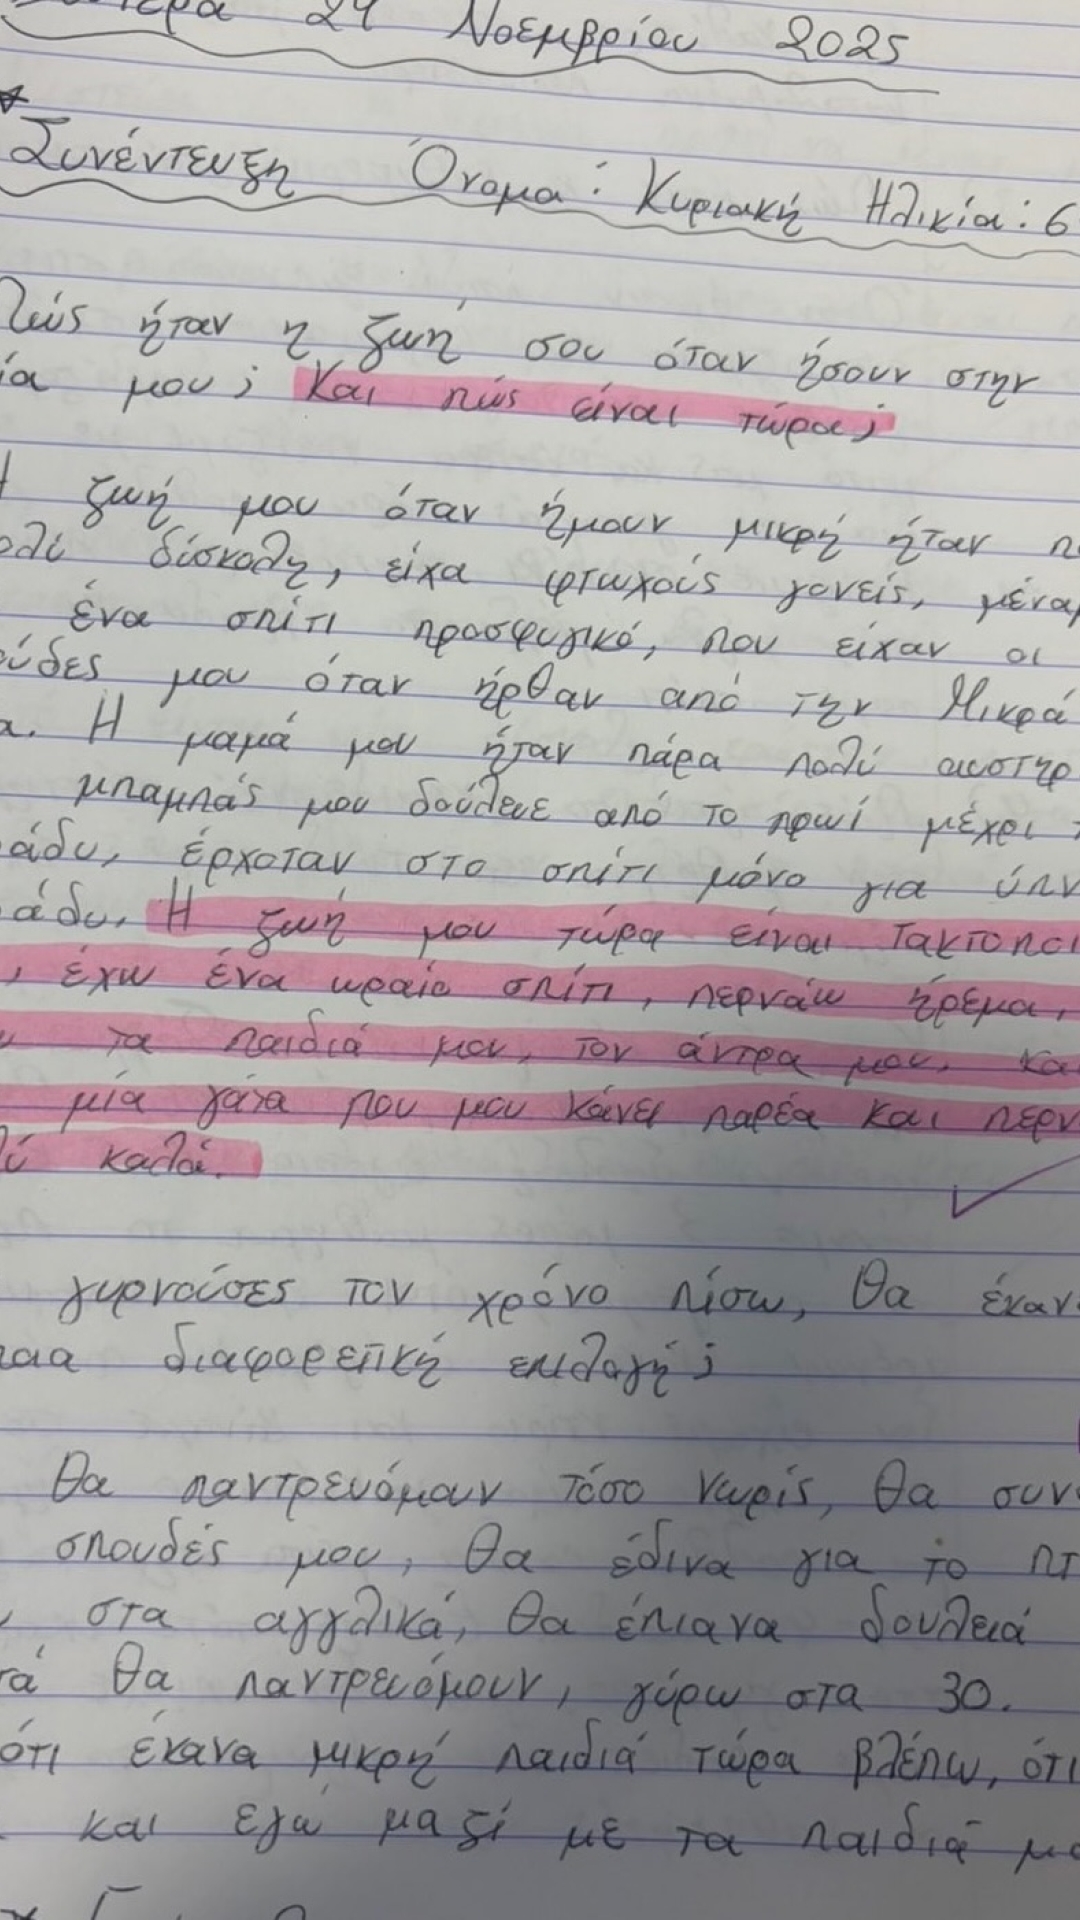 24 Νοεμβρίου 2025
Συνέντευξη Όνομα: Κυριακή Ηλικία: 6
Πώς ήταν η ζωή σου όταν ήσουν στην
ία μου; Και πώς είναι τώρα;
ζωή μου όταν ήμουν μικρή ήταν
δύσκολη, είχα φτωχούς γονείς,
ένα σπίτι προσφυγικό, που είχαν οι
μου όταν ήρθαν από την Μικρά
Η μαμά μου ήταν πάρα πολύ
μπαμπάς μου δούλευε από το πρωί μέχρι
έρχοταν στο σπίτι μόνο για
Η ζωή μου τώρα είναι
, έχω ένα ωραίο σπίτι, περνάω ήρεμα,
τα παιδιά μου, τον άντρα μου,
μία γάτα που μου κάνει παρέα και
καλά.
γυρνούσες τον χρόνο πίσω, θα
διαφορετική επιλογή;
θα παντρευόμουν τόσο νωρίς, θα
σπουδές μου, θα έδινα για το
στα αγγλικά, θα έπιανα δουλειά
θα παντρευόμουν, γύρω στα 30.
ότι έκανα μικρή παιδιά τώρα βλέπω, ότι
και εγώ μαζί με τα παιδιά